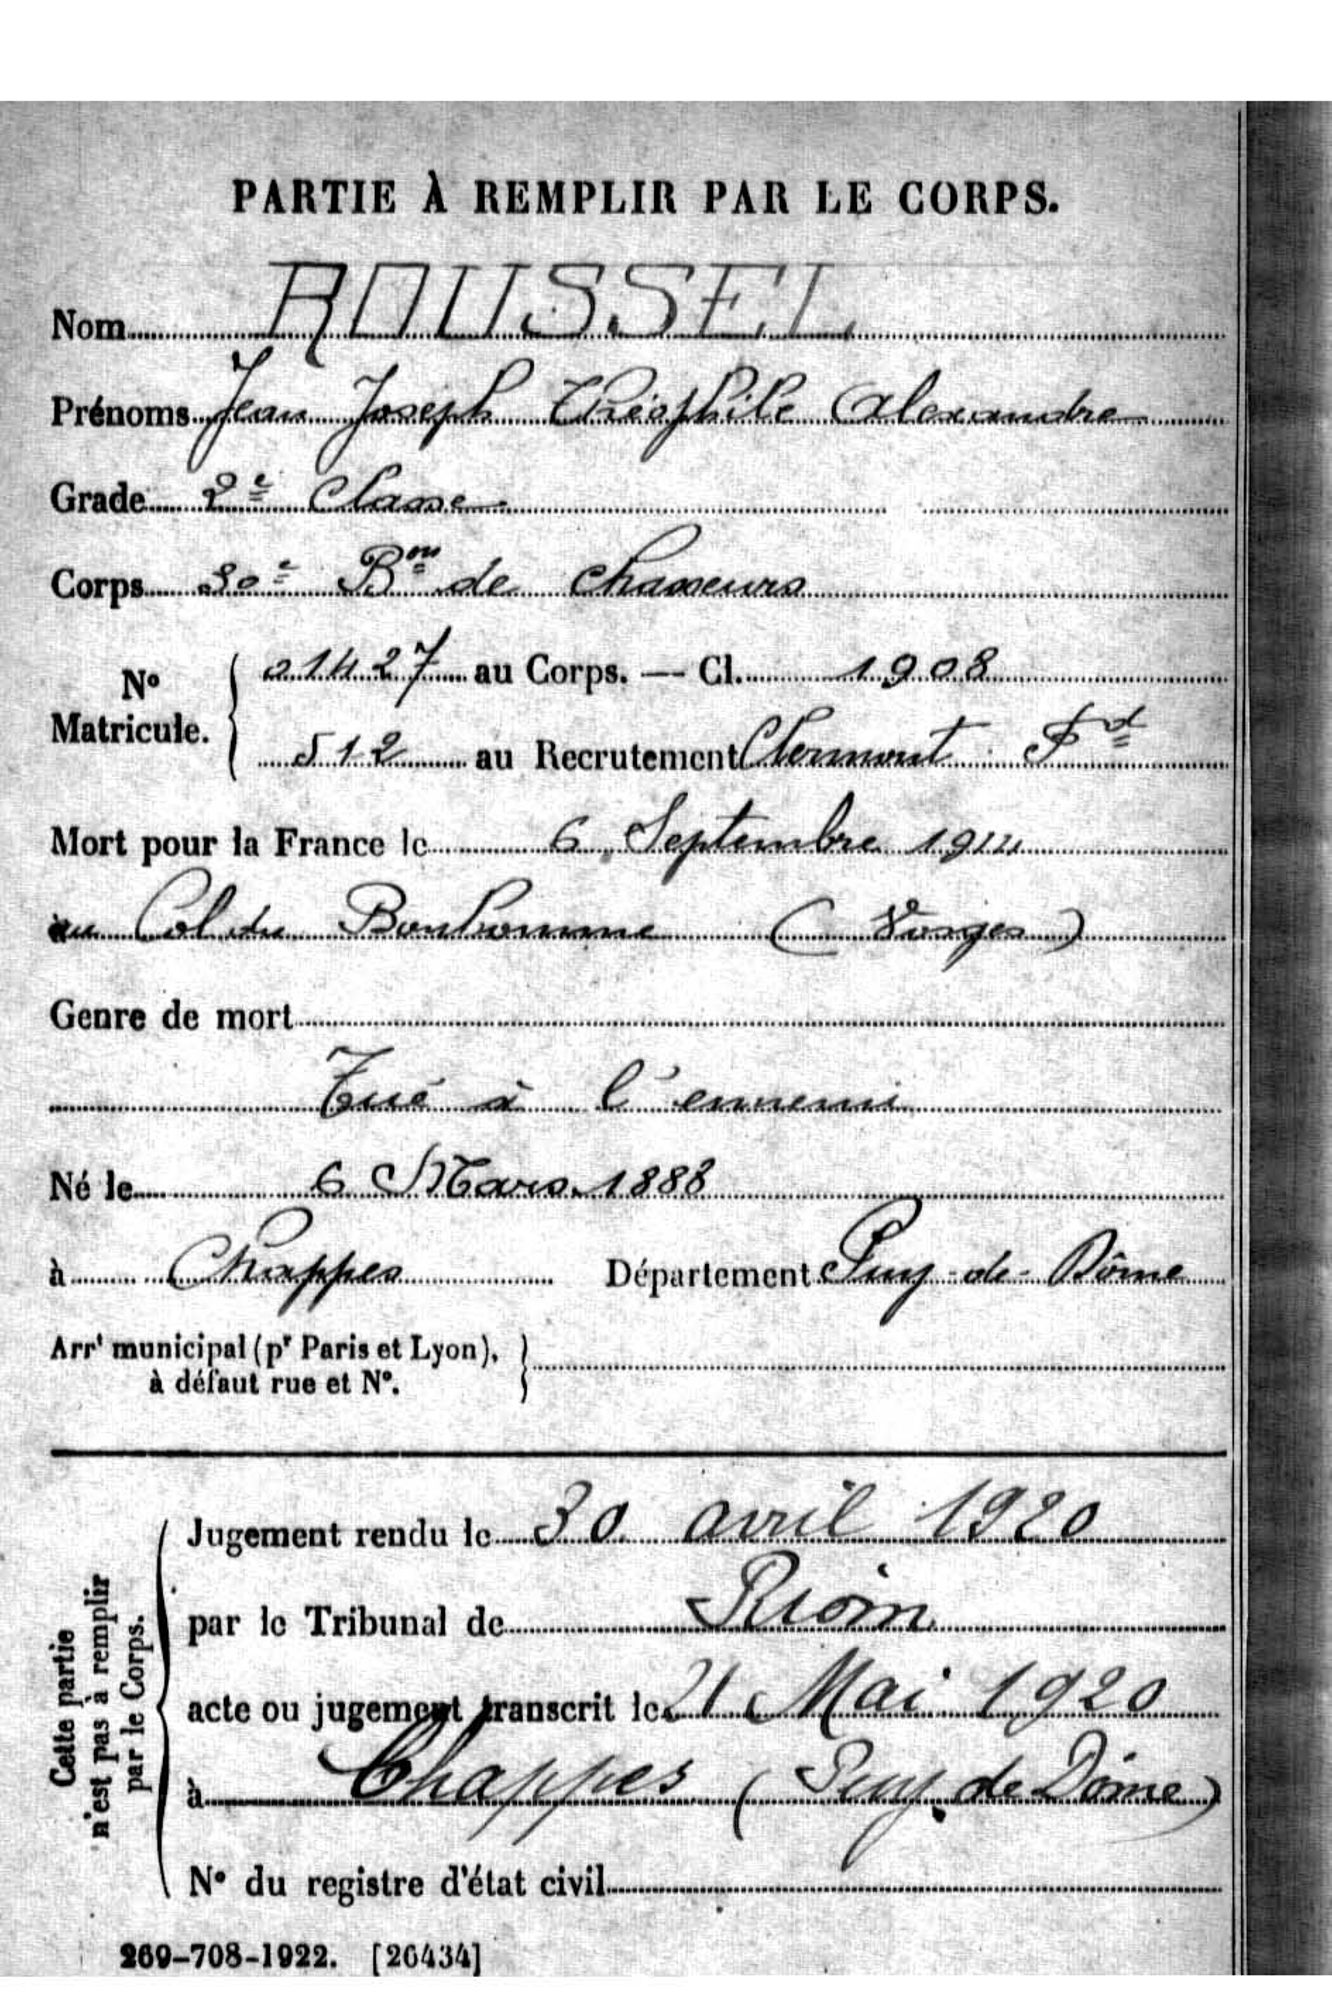 PARTIE À REMPLIR PAR LE CORPS.
Nom ROUSSEL
Prénoms Jean Joseph Théophile Alexandre
Grade 2e Classe
Corps 30e Bon de Chasseurs
No Matricule. { 01427 au Corps. — Cl. 1908
512 au Recrutement Clermont Fd
Mort pour la France le 6 Septembre 1914
au Col du Bonhomme (Vosges)
Genre de mort
Tué à l'ennemi
Né le 6 Mars 1888
à Chappes Département Puy-de-Dôme
Arrt municipal (pr Paris et Lyon), }
à défaut rue et No.
Cette partie
n'est pas à remplir
par le Corps.
Jugement rendu le 30 avril 1920
par le Tribunal de Riom
acte ou jugement transcrit le 21 Mai 1920
à Chappes (Puy de Dôme)
No du registre d'état civil
269-708-1922. [26434]